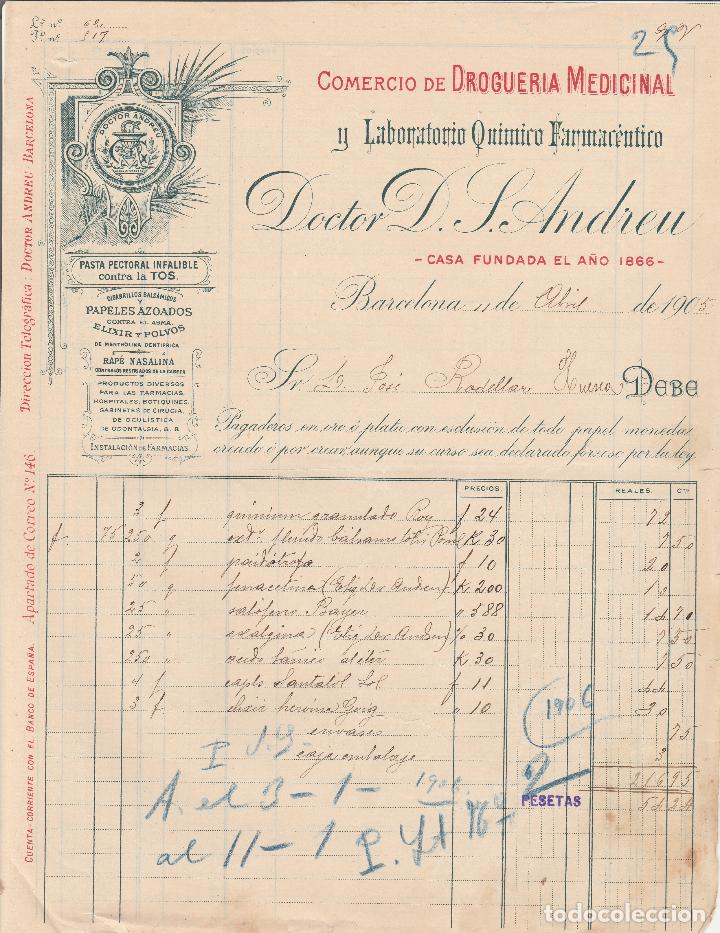 Lº nº 621
Fº nº 317
25
COMERCIO DE DROGUERIA MEDICINAL
y Laboratorio Químico Farmacéutico
Doctor D. S. Andreu
- CASA FUNDADA EL AÑO 1866 -
Barcelona 11 de Abril de 1905
Sr. D. José Rodellar Huesca DEBE
Pagaderos en oro ó plata con esclusión de todo papel moneda
creado ó por crear aunque su curso sea declarado forzoso por la ley.
DOCTOR ANDREU
PASTA PECTORAL INFALIBLE
contra la TOS.
CIGARRILLOS BALSÁMICOS
Y
PAPELES AZOADOS
CONTRA EL ASMA.
ELIXIR Y POLVOS
DE MENTHOLINA DENTIFRICA
RAPÉ NASALINA
CONTRA LOS RESFRIADOS DE LA CABEZA
PRODUCTOS DIVERSOS
PARA LAS FARMACIAS,
HOSPITALES, BOTIQUINES,
GABINETES DE CIRUGIA,
DE OCULÍSTICA
DE ODONTALGIA, &. &.
INSTALACIÓN DE FARMACIAS.
Dirección Telegráfica: DOCTOR ANDREU - BARCELONA
Apartado de Correo Nº 146
CUENTA-CORRIENTE CON EL BANCO DE ESPAÑA.
PRECIOS. REALES. Cts
3 f quinium granulado Roy f 24 72
f. 75 250 g extº fluido bálsamo tolú K 30 7 50
2 f f 10 20
50 g fenacetina (Etiq der Andreu) K 200 10
25 " salófeno Bayer " 388
25 " exalgina (Etiq der Andreu) % 30 7 50
250 " acido tánico al éter K 30 7 50
4 f capls Santalol Sol f 11 44
3 f elixir heroina Gorg " 10 30
envases 75
caja embalaje 3
216 95
PESETAS 54 24
1906
A. el 3 - 1 - 1906
al 11 - 1
todocoleccion.net